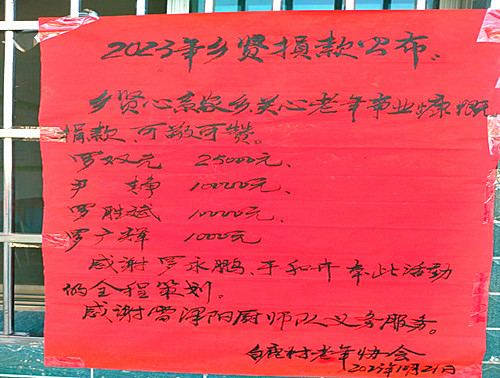 2023年乡贤捐款公布、
乡贤心系故乡关心老年事业慷慨
捐款、可敬可赞。
罗双元 25000元、
尹 峥 10000元、
罗胜斌 10000元、
罗广辉 1000元
感谢罗永鹏、于和开本此活动
的全程策划。
感谢雷泽阳厨师队义务服务。
村老年协会
2023年10月21日